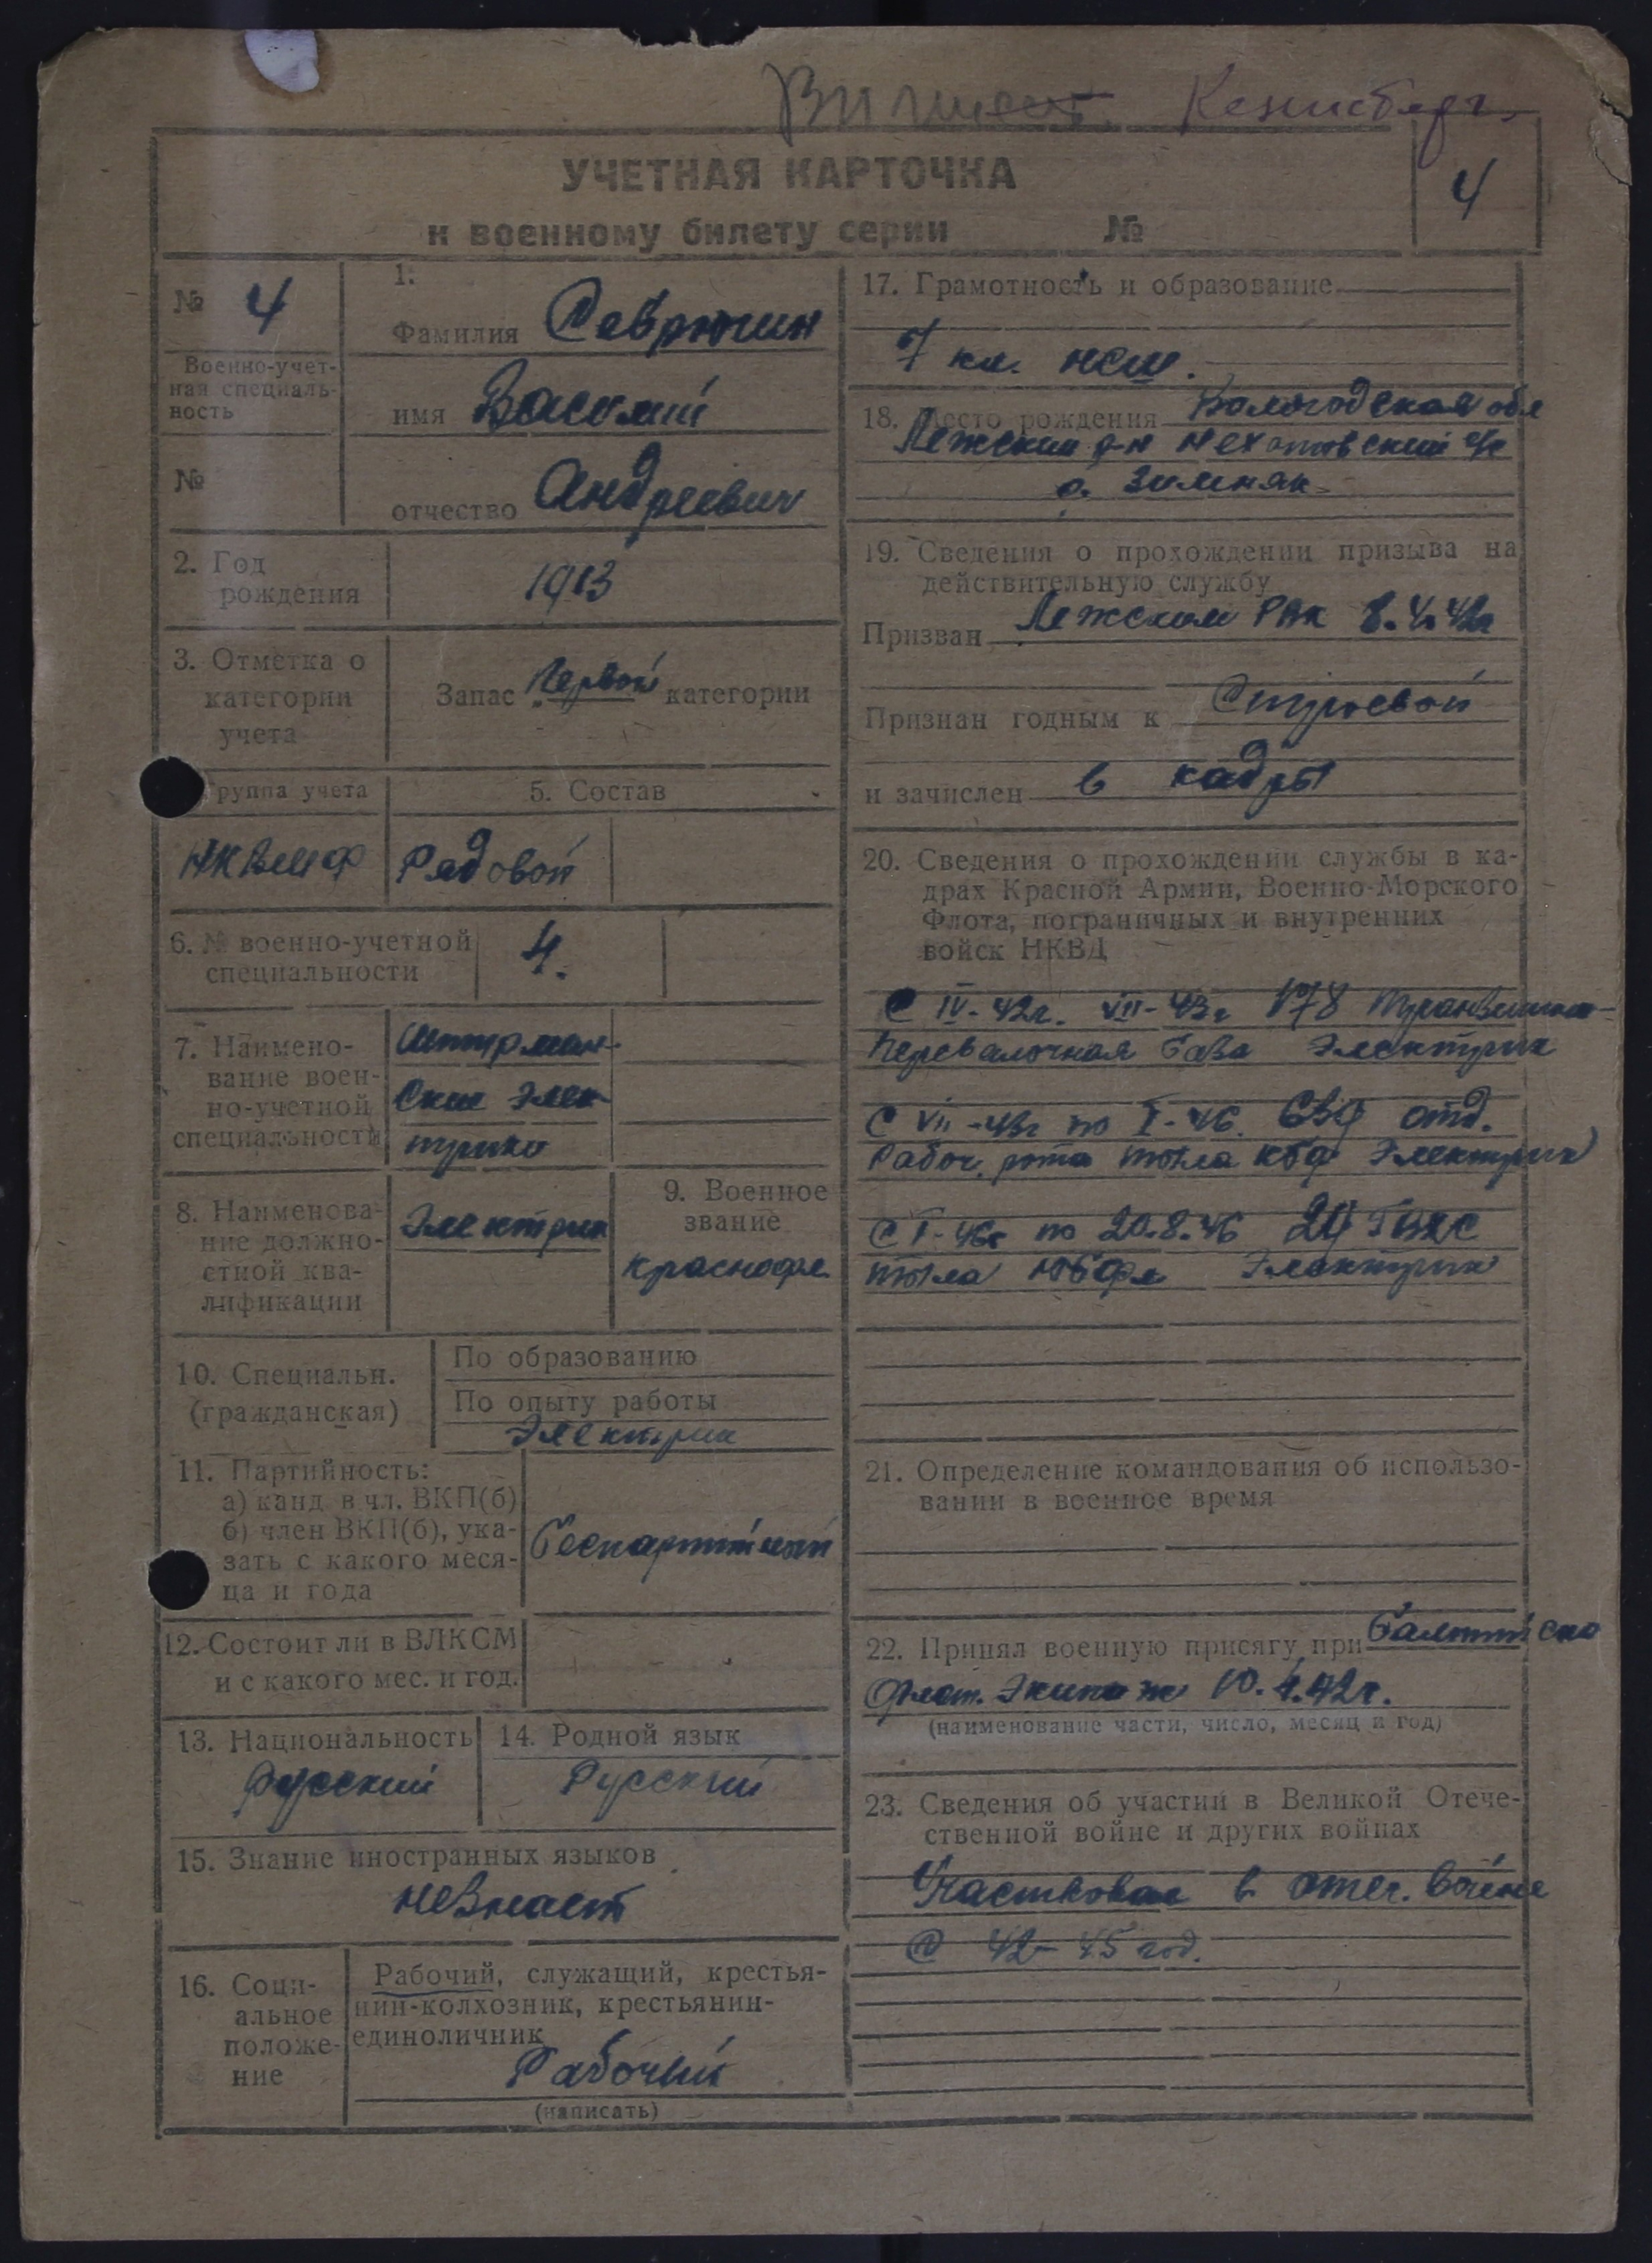 Кенисберг.
УЧЕТНАЯ КАРТОЧКА
4
к военному билету серии №
№ 4
Военно-учет-
ная специаль-
ность
№
1.
Фамилия Севрюгин
имя Василий
отчество Андреевич
2. Год
рождения
1913
3. Отметка о
категории
учета
Запас Первой категории
Группа учета
НКВМФ
5. Состав
Рядовой
6. № военно-учетной
специальности
4.
7. Наимено-
вание воен-
но-учетной
специальности
Штурман-
ские элек
трики
8. Наименова-
ние должно-
стной ква-
лификации
Электрик
9. Военное
звание
краснофл.
10. Специальн.
(гражданская)
По образованию
По опыту работы
Электрик
11. Партийность:
а) канд. в чл. ВКП(б)
б) член ВКП(б), ука-
зать с какого меся-
ца и года
беспартийный
12. Состоит ли в ВЛКСМ
и с какого мес. и год.
-
13. Национальность
Русский
14. Родной язык
Русский
15. Знание иностранных языков
незнает
16. Соци-
альное
положе-
ние
Рабочий, служащий, крестья-
нин-колхозник, крестьянин-
единоличник
Рабочий
(написать)
17. Грамотность и образование
7 кл. нсш.
18. Место рождения Вологодская обл
Лежский р-н с/с
д. Зимняк
19. Сведения о прохождении призыва на
действительную службу
Призван Лежским РВК 8.4.42г
Признан годным к Строевой
и зачислен в кадры
20. Сведения о прохождении службы в ка-
драх Красной Армии, Военно-Морского
Флота, пограничных и внутренних
войск НКВД
С IV-42г. VII-43г №78
Перевалочная база Электрик
С VII-43г по I-46. 639 отд.
Рабоч. рота тыла КБФ Электрик
С I-46г по 20.8.46
тыла ЮБФл Электрик
21. Определение командования об использо-
вании в военное время
22. Принял военную присягу при Балтийско
флот. Экипаж 10.4.42г.
(наименование части, число, месяц и год)
23. Сведения об участии в Великой Отече-
ственной войне и других войнах
Участвовал в отеч. войне
С 42-45 год.